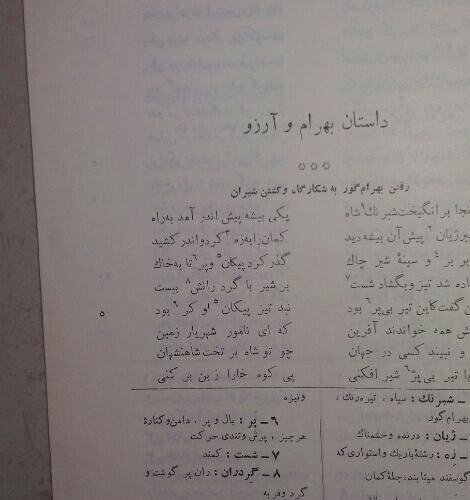 داستان بهرام و آرزو
رفتن بهرام‌گور به شکارگاه و کشتن شیران
برانگیخت شبرنگ¹ شاه یکی بیشه پیش اندر آمد به‌راه
پیش آن بیشه دید کمان را به‌زه³ کرد و اندر کشید
بر⁴ و سینهٔ شیر چاک گذر کرد پیکان⁵ و پر⁶ تا به‌خاک
شد تیز و بگشاد شست⁷ بر شیر با گرد رانش⁸ ببست
گفت کاین تیر بی‌پر⁶ بود نبد تیز پیکان⁵ او کر⁹ بود
همه خواندند آفرین که ای نامور شهریار زمین
و نبیند کسی در جهان چو تو شاه بر تخت شاهنشهان
تیر بی‌پر⁶ شیر افکنی پی کوه خارا ز بن بر کنی
۵
ـ شبرنگ : سیاه ، تیره‌رنگ ،
بهرام‌گور
ـ ژیان : درنده و خشمناک
ـ زه : رشتهٔ باریک و استواری که
گوسفند میتابند، چلهٔ کمان
ونیزه
۶ ـ پر : بال و پر ، دامن و کنارهٔ
هرچیز ، پرش و تندی حرکت
۷ ـ شست : کمند
۸ ـ گردران : ران پر گوشت و
گرد و فربه